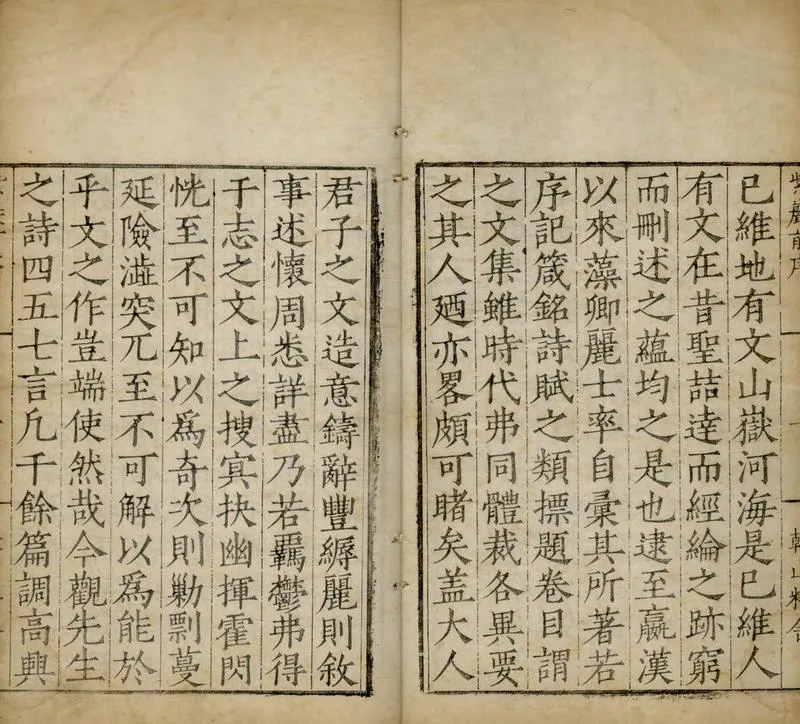 已維地有文山嶽河海是已維人
有文在昔聖喆達而經綸之跡窮
而刪述之蘊均之是也逮至嬴漢
以來藻卿麗士率自彙其所著若
序記箴銘詩賦之類摽題卷目謂
之文集雖時代弗同體裁各異要
之其人廼亦畧頗可睹矣盖大人
君子之文造意鑄辭豐縟麗則敘
事述懷周悉詳盡乃若羈鬱弗得
于志之文上之搜㝠抉幽揮霍閃
恍至不可知以爲奇次則勦剽蔓
延險澁突兀至不可解以爲能於
乎文之作豈端使然哉今觀先生
之詩四五七言凢千餘篇調高興